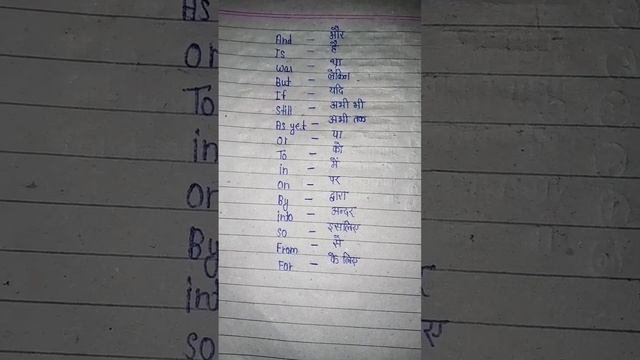 And - और
Is - है
Was - था
But - लेकिन
If - यदि
Still - अभी भी
As yet - अभी तक
Or - या
To - को
in - में
on - पर
By - द्वारा
into - अन्दर
so - इसलिए
From - से
For - के लिए